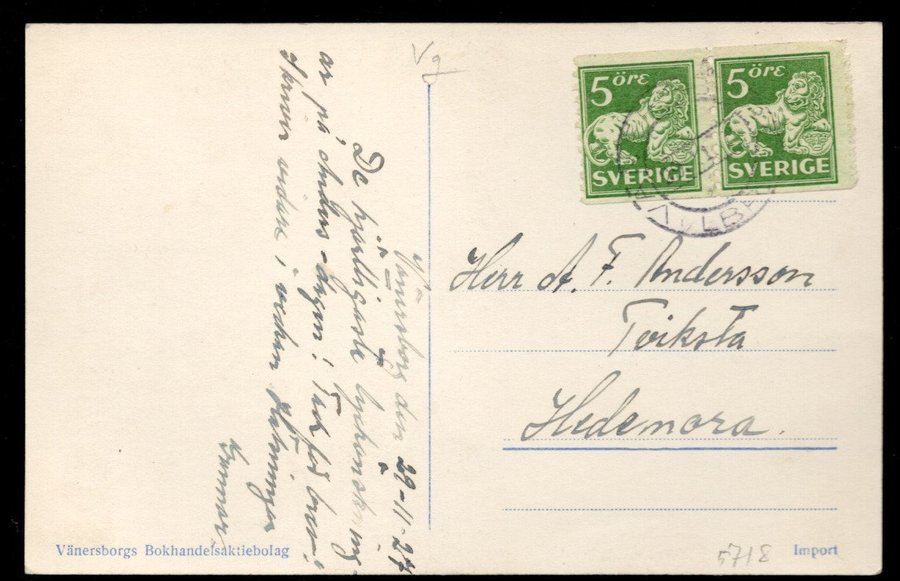 Vg
5 öre
SVERIGE
5 öre
SVERIGE
Vänersborg den 29-11-27
De hjärtligaste lyckönskning-
ar på Anders-dagen! Tack för brev
Skriver vidare i veckan Hälsningar
Gunnar
Herr A. F. Andersson
Tviksta
Hedemora.
Vänersborgs Bokhandelsaktiebolag
5718
Import